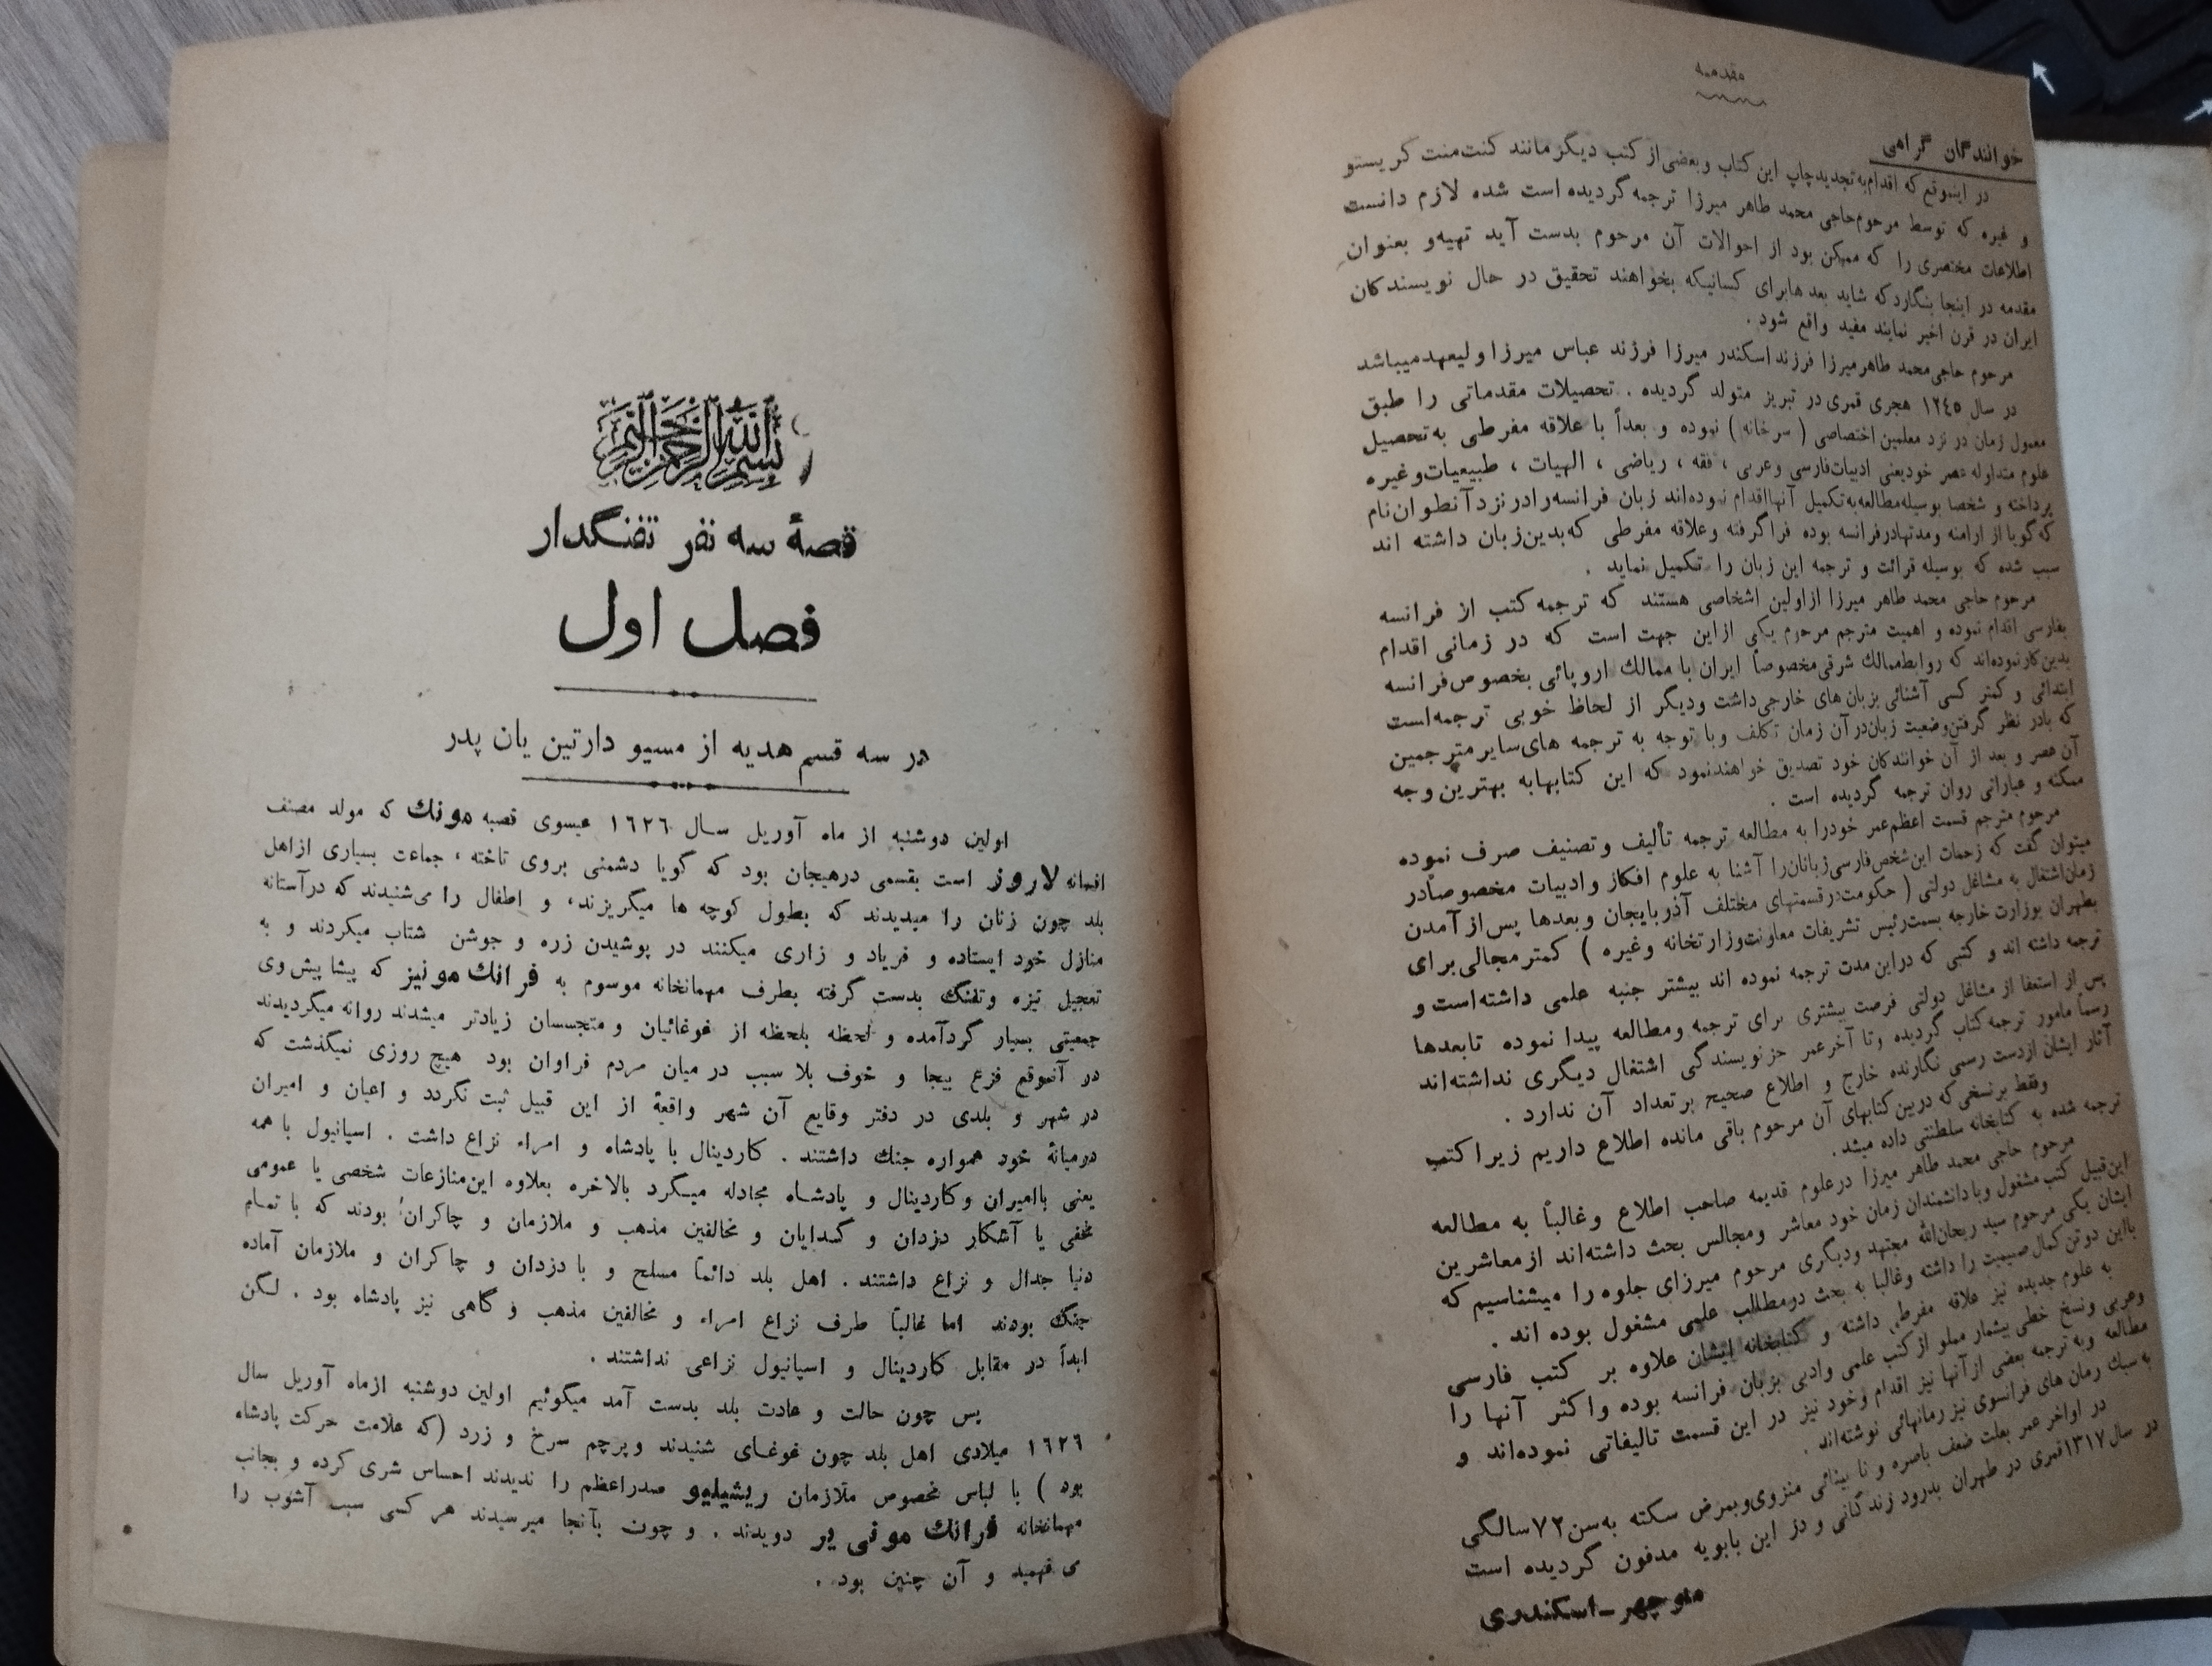 مقدمه
خوانندگان گرامی
در اینموقع که اقدام به تجدید چاپ این کتاب و بعضی از کتب دیگر مانند کنت منت کریستو
و غیره که توسط مرحوم حاجی محمد طاهر میرزا ترجمه گردیده است شده لازم دانست
اطلاعات مختصری را که ممکن بود از احوالات آن مرحوم بدست آید تهیه و بعنوان
مقدمه در اینجا بنگارد که شاید بعد ها برای کسانیکه بخواهند تحقیق در حال نویسندگان
ایران در قرن اخیر نمایند مفید واقع شود .
مرحوم حاجی محمد طاهر میرزا فرزند اسکندر میرزا فرزند عباس میرزا ولیعهد میباشد
در سال ۱۲٤۵ هجری قمری در تبریز متولد گردیده . تحصیلات مقدماتی را طبق
معمول زمان در نزد معلمین اختصاصی ( سرخانه ) نموده و بعداً با علاقه مفرطی به تحصیل
علوم متداوله عصر خود یعنی ادبیات فارسی و عربی ، فقه ، ریاضی ، الهیات ، طبیعیات و غیره
پرداخته و شخصا بوسیله مطالعه به تکمیل آنها اقدام نموده‌اند زبان فرانسه را در نزد آنطوان نام
که گویا از ارامنه و مدتها در فرانسه بوده فرا گرفته و علاقه مفرطی که بدین زبان داشته اند
سبب شده که بوسیله قرائت و ترجمه این زبان را تکمیل نماید .
مرحوم حاجی محمد طاهر میرزا از اولین اشخاصی هستند که ترجمه کتب از فرانسه
بفارسی اقدام نموده و اهمیت مترجم مرحوم یکی از این جهت است که در زمانی اقدام
بدین کار نموده‌اند که روابط ممالك شرقی مخصوصاً ایران با ممالك اروپائی بخصوص فرانسه
ابتدائی و کمتر کسی آشنائی بزبان های خارجی داشت و دیگر از لحاظ خوبی ترجمه است
که با در نظر گرفتن وضعیت زبان در آن زمان تکلف و با توجه به ترجمه های سایر مترجمین
آن عصر و بعد از آن خوانندگان خود تصدیق خواهند نمود که این کتابها به بهترین وجه
ممکنه و عباراتی روان ترجمه گردیده است .
مرحوم مترجم قسمت اعظم عمر خود را به مطالعه ترجمه تألیف و تصنیف صرف نموده
میتوان گفت که زحمات این شخص فارسی زبانان را آشنا به علوم افکار و ادبیات مخصوصاً در
زمان اشتغال به مشاغل دولتی ( حکومت در قسمتهای مختلف آذربایجان و بعدها پس از آمدن
بطهران بوزارت خارجه بسمت رئیس تشریفات معاونت وزارتخانه و غیره ) کمتر مجالی برای
ترجمه داشته اند و کتبی که در این مدت ترجمه نموده اند بیشتر جنبه علمی داشته است و
پس از استعفا از مشاغل دولتی فرصت بیشتری برای ترجمه و مطالعه پیدا نموده تا بعدها
رسماً مامور ترجمه کتاب گردیده و تا آخر عمر جز نویسندگی اشتغال دیگری نداشته‌اند
آثار ایشان از دست رسی نگارنده خارج و اطلاع صحیح بر تعداد آن ندارد .
وفقط بر نسخی که در بین کتابهای آن مرحوم باقی مانده اطلاع داریم زیرا کتب
ترجمه شده به کتابخانه سلطنتی داده میشد .
مرحوم حاجی محمد طاهر میرزا در علوم قدیمه صاحب اطلاع و غالباً به مطالعه
این قبیل کتب مشغول و با دانشمندان زمان خود معاشر و مجالس بحث داشته‌اند از معاشرین
ایشان یکی مرحوم سید ریحان‌الله مجتهد و دیگری مرحوم میرزای جلوه را میشناسیم که
با این دو تن کمال صمیمیت را داشته و غالبا به بحث در مطالب علمی مشغول بوده اند .
به علوم جدیده نیز علاقه مفرط داشته و کتابخانه ایشان علاوه بر کتب فارسی
و عربی و نسخ خطی بیشمار مملو از کتب علمی و ادبی بزبان فرانسه بوده و اکثر آنها را
مطالعه و به ترجمه بعضی از آنها نیز اقدام و خود نیز در این قسمت تالیفاتی نموده‌اند و
به سبك رمان های فرانسوی نیز رمانهائی نوشته‌اند .
در اواخر عمر بعلت ضعف باصره و نا بینائی منزوی و بمرض سکته به سن ۷۲ سالگی
در سال ۱۳۱۷ قمری در طهران بدرود زندگانی و در ابن بابویه مدفون گردیده است
منوچهر - اسکندری
بسم الله الرحمن الرحیم
قصهٔ سه نفر تفنگدار
فصل اول
در سه قسم هدیه از مسیو دارتین یان پدر
اولین دوشنبه از ماه آوریل سال ۱٦۲٦ عیسوی قصبه مونك که مولد مصنف
افسانه لاروز است بقسمی در هیجان بود که گویا دشمنی بروی تاخته ، جماعت بسیاری از اهل
بلد چون زنان را میدیدند که بطول کوچه ها میگریزند ، و اطفال را می‌شنیدند که در آستانه
منازل خود ایستاده و فریاد و زاری میکنند در پوشیدن زره و جوشن شتاب میکردند و به
تعجیل نیزه و تفنگ بدست گرفته بطرف مهمانخانه موسوم به فرانك مونیز که پیشا پیش وی
جمعیتی بسیار گرد آمده و لحظه بلحظه از غوغائیان و متجسسان زیادتر میشدند روانه میگردیدند
در آنموقع فزع بیجا و خوف بلا سبب در میان مردم فراوان بود هیچ روزی نمیگذشت که
در شهر و بلدی در دفتر وقایع آن شهر واقعهٔ از این قبیل ثبت نگردد و اعیان و امیران
درمیانهٔ خود همواره جنك داشتند . کاردینال با پادشاه و امراء نزاع داشت . اسپانیول با همه
یعنی با امیران و کاردینال و پادشاه مجادله میکرد بالاخره بعلاوه این منازعات شخصی یا عمومی
مخفی یا آشکار دزدان و گدایان و مخالفین مذهب و ملازمان و چاکران بودند که با تمام
دنیا جدال و نزاع داشتند . اهل بلد دائماً مسلح و با دزدان و چاکران و ملازمان آماده
جنگ بودند اما غالباً طرف نزاع امراء و مخالفین مذهب و گاهی نیز پادشاه بود . لکن
ابداً در مقابل کاردینال و اسپانیول نزاعی نداشتند .
پس چون حالت و عادت بلد بدست آمد میگوئیم اولین دوشنبه از ماه آوریل سال
۱٦۲٦ میلادی اهل بلد چون غوغای شنیدند و پرچم سرخ و زرد (که علامت حرکت پادشاه
بود ) با لباس مخصوص ملازمان ریشیلیو صدراعظم را ندیدند احساس شری کرده و بجانب
مهمانخانه فرانك مونی یر دویدند . و چون بآنجا میرسیدند هر کسی سبب آشوب را
می فهمید و آن چنین بود .